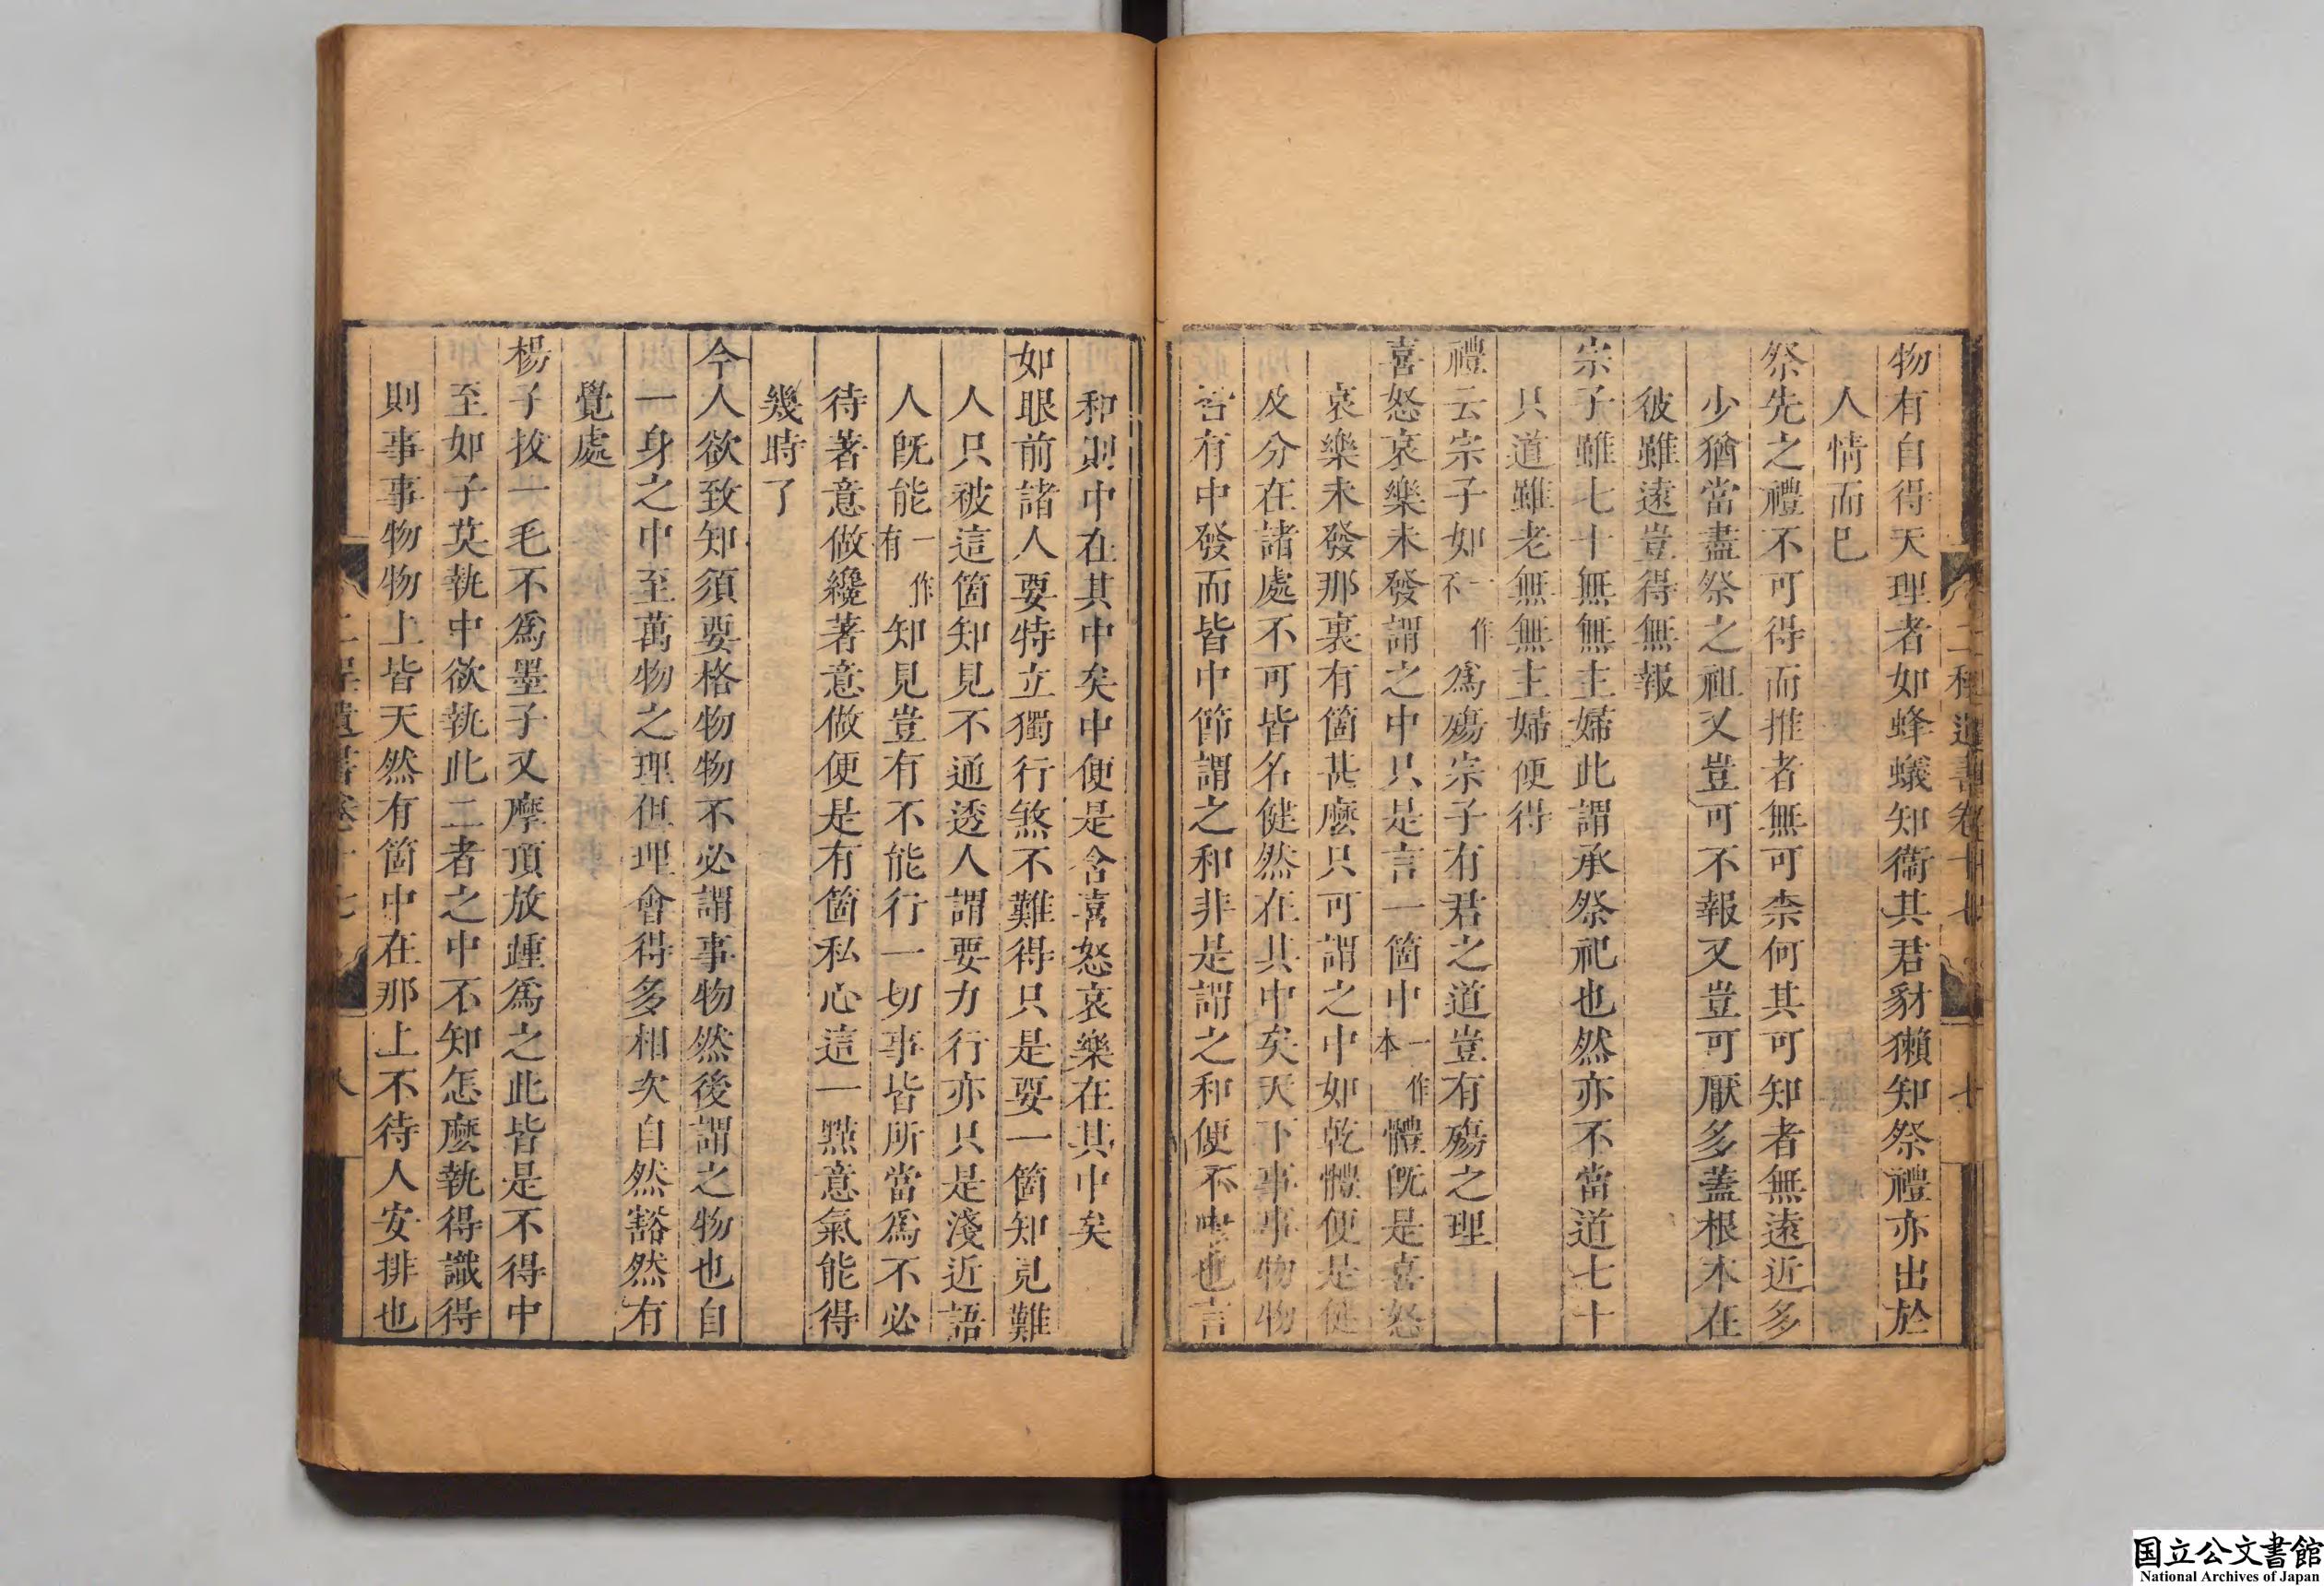 物有自得天理者如蜂蟻知衞其君豺獺知祭禮亦出於
人情而巳
祭先之禮不可得而推者無可柰何其可知者無遠近多
少猶當盡祭之祖又豈可不報又豈可厭多蓋根本在
彼雖遠豈得無報
宗子雖七十無無主婦此謂承祭祀也然亦不當道七十
只道雖老無無主婦便得
禮云宗子如一作不為殤宗子有君之道豈有殤之理
喜怒哀樂未發謂之中只是言一箇中一作本體旣是喜怒
哀樂未發那裏有箇甚麼只可謂之中如乾體便是健
及分在諸處不可皆名健然在其中矣天下事事物物
皆有中發而皆中節謂之和非是謂之和便不中也言
和則中在其中矣中便是含喜怒哀樂在其中矣
如眼前諸人要特立獨行煞不難得只是要一箇知見難
人只被這箇知見不通透人謂要力行亦只是淺近語
人旣能一作有知見豈有不能行一切事皆所當為不必
待著意做纔著意做便是有箇私心這一點意氣能得
幾時了
今人欲致知須要格物物不必謂事物然後謂之物也自
一身之中至萬物之理但理會得多相次自然豁然有
覺處
楊子拔一毛不為墨子又摩頂放踵為之此皆是不得中
至如子莫執中欲執此二者之中不知怎麼執得識得
則事事物物上皆天然有箇中在那上不待人安排也
二程遺書卷十七
七
二程遺書卷十七
八
国立公文書館
National Archives of Japan